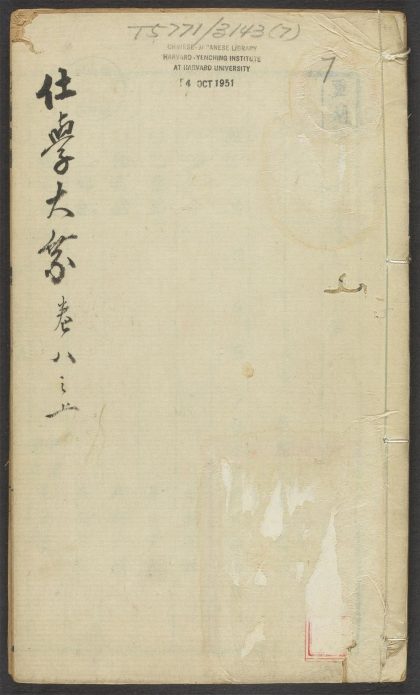 T5771/3143(7)
CHINESE-JAPANESE LIBRARY
HARVARD-YENCHING INSTITUTE
AT HARVARD UNIVERSITY
14 OCT 1951
7
仕學大乘 卷八之上